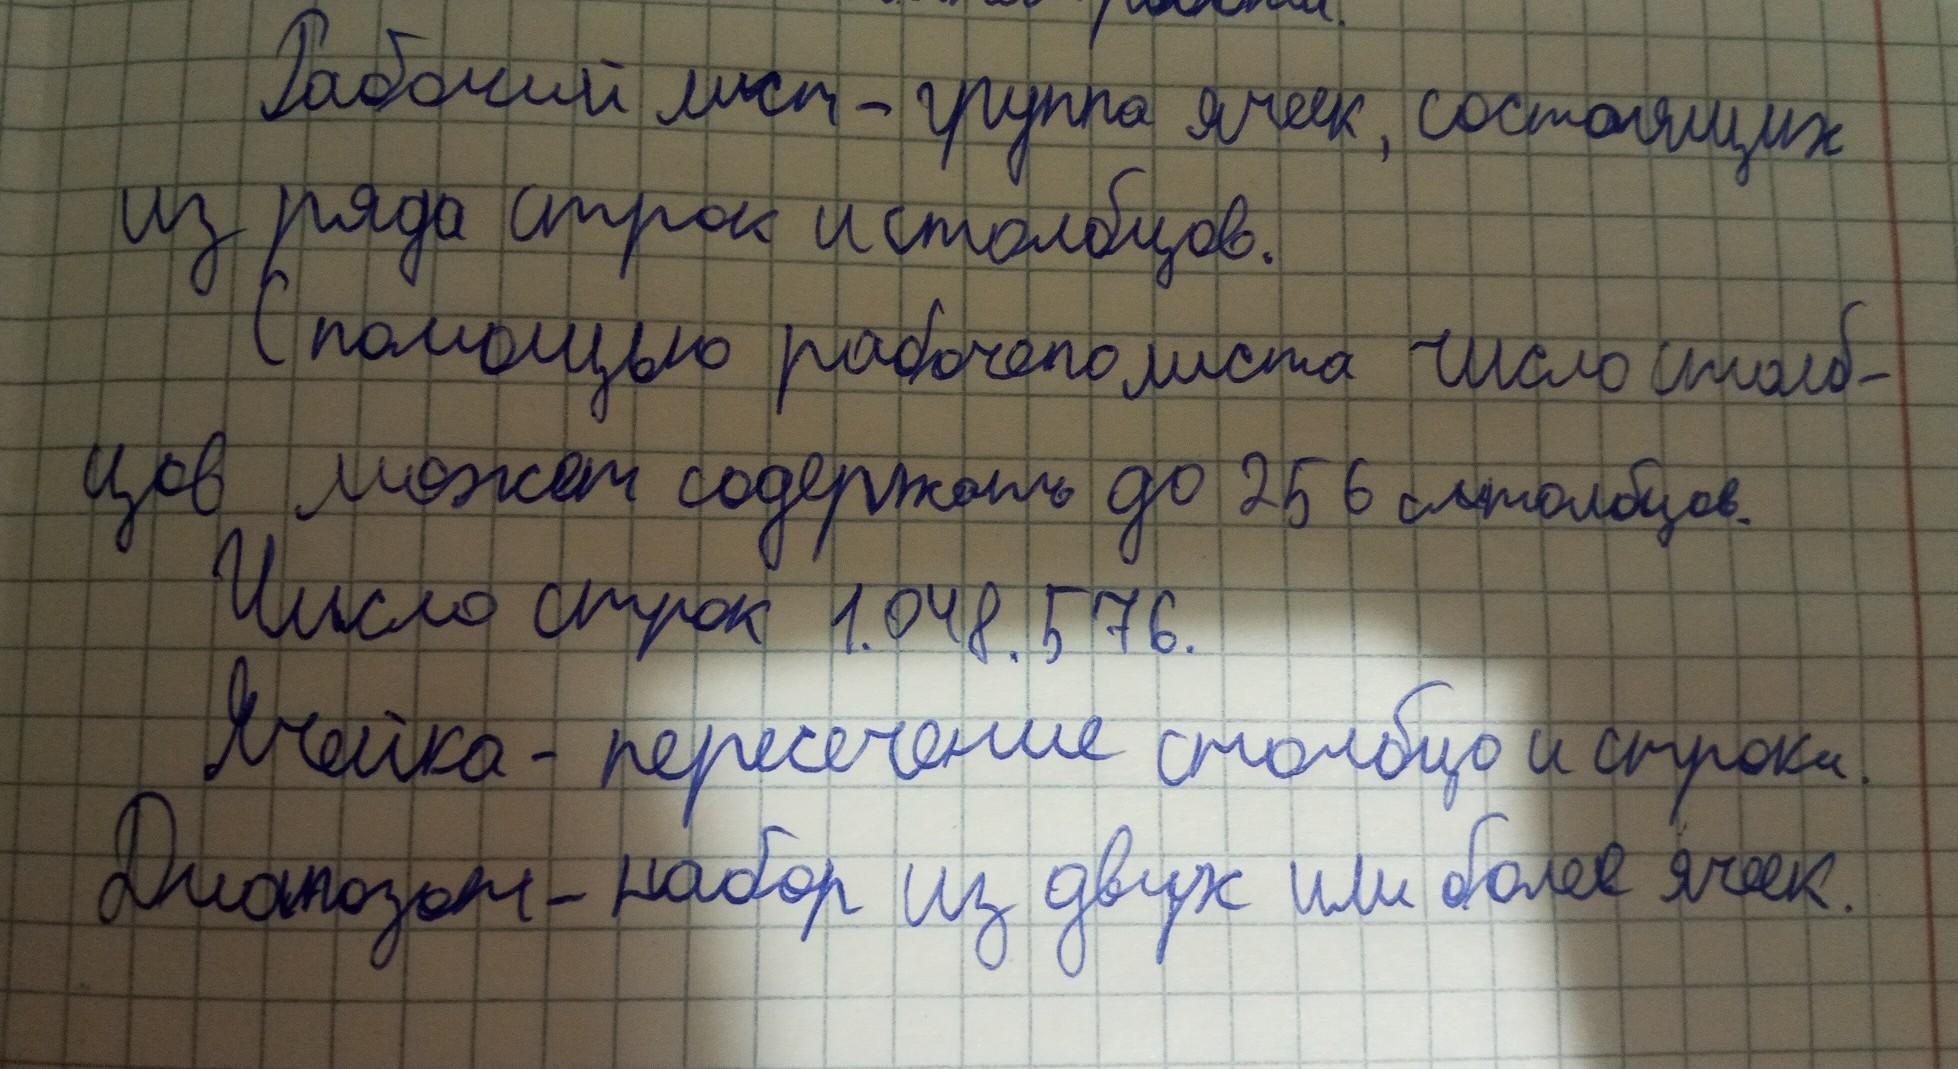 Рабочий лист - группа ячеек, состоящих
из ряда строк и столбцов.
С помощью рабочего листа число столб-
цов может содержать до 256 столбцов.
Число строк 1.048.576.
Ячейка - пересечение столбца и строки.
Диапозон - набор из двух или более ячеек.